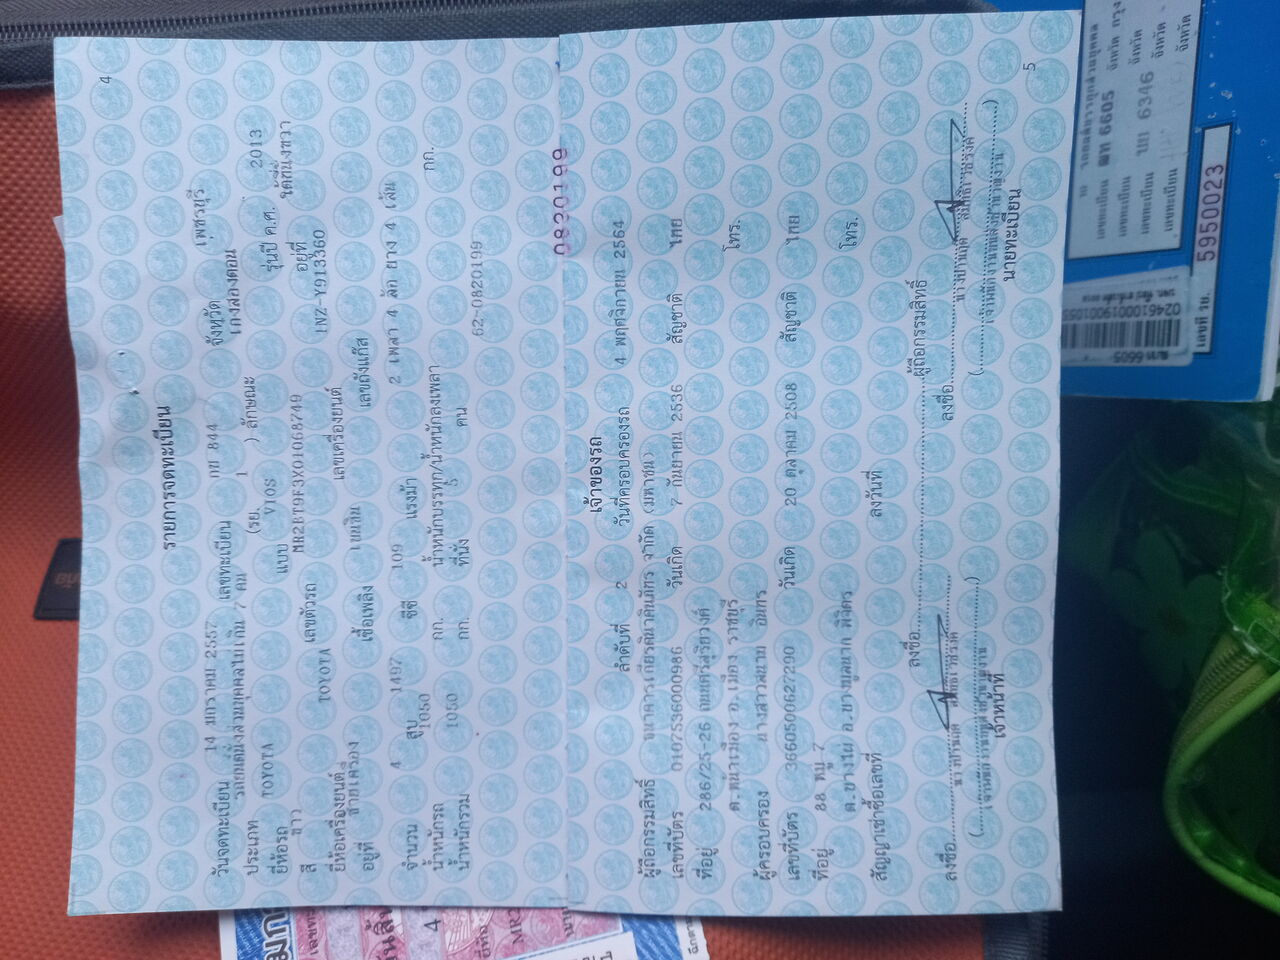 4
รายการจดทะเบียน
วันจดทะเบียน 14 มกราคม 2557 เลขทะเบียน กบ 844 จังหวัด เพชรบุรี
ประเภท รถยนต์นั่งส่วนบุคคลไม่เกิน 7 คน (รย. 1 ) ลักษณะ เก๋งสองตอน
ยี่ห้อรถ TOYOTA แบบ VIOS รุ่นปี ค.ศ. 2013
สี ขาว เลขตัวรถ MR2BT9F3X01068749 อยู่ที่ ใต้ที่นั่งขวา
ยี่ห้อเครื่องยนต์ TOYOTA เลขเครื่องยนต์ 1NZ-Y913360
อยู่ที่ ซ้ายเครื่อง เชื้อเพลิง เบนซิน เลขถังแก๊ส
จำนวน 4 สูบ 1497 ซีซี 109 แรงม้า 2 เพลา 4 ล้อ ยาง 4 เส้น
น้ำหนักรถ 1050 กก. น้ำหนักบรรทุก/น้ำหนักลงเพลา กก.
น้ำหนักรวม 1050 กก. ที่นั่ง 5 คน
62-0820199
0820199
เจ้าของรถ
ลำดับที่ 2 วันที่ครอบครองรถ 4 พฤศจิกายน 2564
ผู้ถือกรรมสิทธิ์ ธนาคารเกียรตินาคินภัทร จำกัด (มหาชน)
เลขที่บัตร 0107536000986 วันเกิด 7 กันยายน 2536 สัญชาติ ไทย
ที่อยู่ 286/25-26 ถนนศรีสุริยวงศ์
ต.หน้าเมือง อ.เมือง ราชบุรี โทร.
ผู้ครอบครอง นางสาวสนาม อินทร
เลขที่บัตร 3660500627290 วันเกิด 20 ตุลาคม 2508 สัญชาติ ไทย
ที่อยู่ 88 หมู่ 7
ต.บางไผ่ อ.บางมูลนาก พิจิตร โทร.
สัญญาเช่าซื้อเลขที่ ลงวันที่
ลงชื่อ ผู้ถือกรรมสิทธิ์
ลงชื่อ ลงชื่อ
เจ้าหน้าที่ นายทะเบียน
5
เลขทะเบียน ฒท 6605 จังหวัด
เลขทะเบียน จังหวัด
เลขทะเบียน 6346 จังหวัด
เลขทะเบียน จังหวัด
024610001900105
6605
เลขที่ รย. 5950023
4
MR2